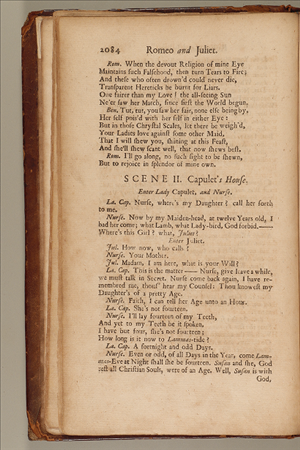 2084 Romeo and Juliet.
Rom. When the devout Religion of mine Eye
Maintains such Falsehood, then turn Tears to Fire;
And these who often drown'd could never die,
Transparent Hereticks be burnt for Liars.
One fairer than my Love! the all-seeing Sun
Ne'er saw her March, since first the World begun.
Ben. Tut, tut, you saw her fair, none else being by,
Her self pois'd with her self in either Eye:
But in those Chrystal Scales, let there be weigh'd,
Your Ladies love against some other Maid,
That I will shew you, shining at this Feast,
And she'll shew scant well, that now shews best.
Rom. I'll go along, no such sight to be shewn,
But to rejoice in splendor of mine own.
SCENE II. Capulet's House.
Enter Lady Capulet, and Nurse.
La. Cap. Nurse, where's my Daughter? call her forth
to me.
Nurse. Now by my Maiden-head, at twelve Years old, I
bad her come; what Lamb, what Lady-bird, God forbid.——
Where's this Girl? what, Juliet?
Enter Juliet.
Jul. How now, who calls?
Nurse. Your Mother.
Jul. Madam, I am here, what is your Will?
La. Cap. This is the matter —— Nurse, give leave a while,
we must talk in Secret. Nurse come back again, I have re-
membred me, thou' hear my Counsel: Thou knowest my
Daughter's of a pretty Age.
Nurse. Faith, I can tell her Age unto an Hour.
La. Cap. She's not fourteen.
Nurse. I'll lay fourteen of my Teeth,
And yet to my Teeth be it spoken,
I have but four, she's not fourteen;
How long is it now to Lammas-tide?
La. Cap. A fortnight and odd Days.
Nurse. Even or odd, of all Days in the Year, come Lam-
mas-Eve at Night shall she be fourteen. Susan and she, God
rest all Christian Souls, were of an Age. Well, Susan is with
God,